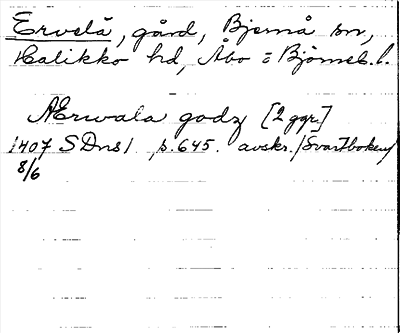 Ervelä, gård, Bjernå sn,
Halikko hd, Åbo o Björneb. l.
Ærwala godz [2 ggr.]
1407 SDns 1 p. 645. avskr. /Svartboken/
8/6